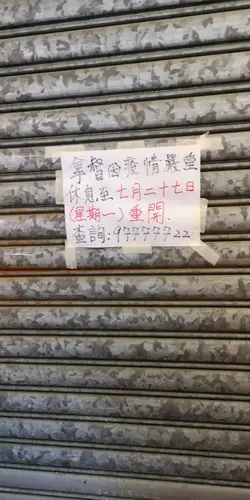 掌智因疫情嚴重
休息至七月二十七日
(星期一)重開.
查詢:97777722